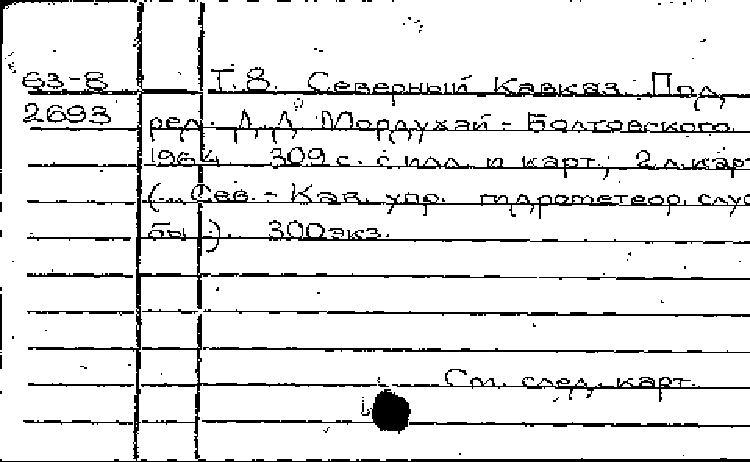 63-8 Т.8. Северный Кавказ. Под
2693 ред. Д.Д. Мордухай-Болтовского.
1964. 309 с. с илл. и карт.; 2 л. карт
(... Сев.-Кав. упр. гидрометеор. служ
бы). 300 экз.
См. след. карт.